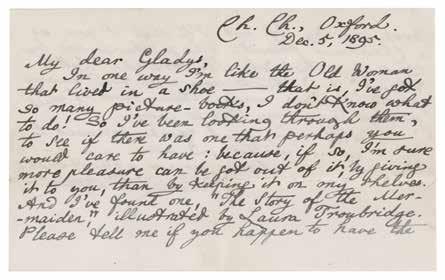 Ch. Ch., Oxford.
Dec. 5, 1895.
My dear Gladys,
In one way I'm like the Old Woman
that lived in a shoe — that is, I've got
so many picture-books, I don't know what
to do! So I've been looking through them,
to see if there was one that perhaps you
would care to have: because, if so, I'm sure
more pleasure can be got out of it, by giving
it to you, than by keeping it on my shelves.
And I've found one, "The Story of the Mer-
maiden," illustrated by Laura Troubridge.
Please tell me if you happen to have the